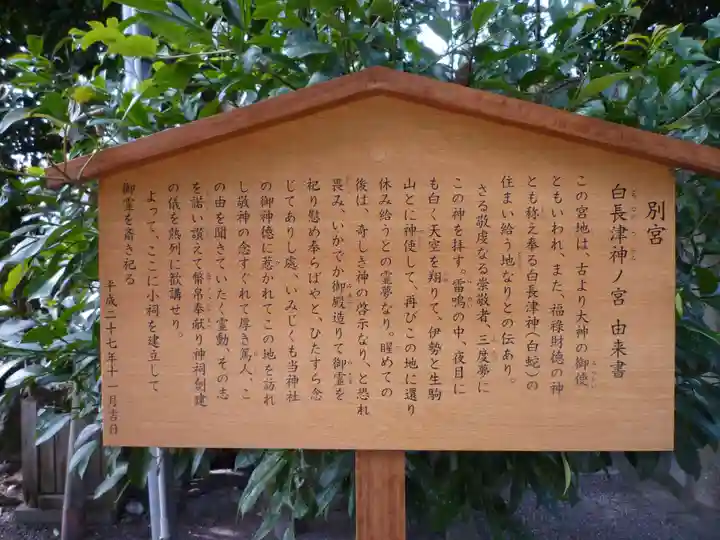 別宮
白長津神ノ宮 由来書
この宮地は、古より大神の御使
ともいわれ、また、福禄財徳の神
とも称え奉る白長津神（白蛇）の
住まい給う地なりとの伝あり。
さる敬虔なる崇敬者、三度夢に
この神を拝す。雷鳴の中、夜目に
も白く天空を翔りて、伊勢と生駒
山とに神使して、再びこの地に還り
休み給うとの霊夢なり。醒めての
後は、奇しき神の啓示なり、と恐れ
畏み、いかでか御殿造りて御霊を
祀り慰め奉らばやと、ひたすら念
じてありし処、いみじくも当神社
の御神徳に惹かれてこの地を訪れ
し敬神の念すぐれて厚き篤人、こ
の由を聞きていたく霊動、その志
を諾い讃えて幣帛奉献り神祠創建
の儀を熱列に歓講せり。
よって、ここに小祠を建立して
御霊を斎き祀る
平成二十七年十一月吉日